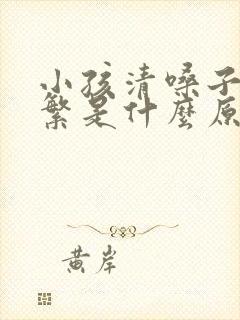 小孩清嗓子
繁是什麼原
黄岸